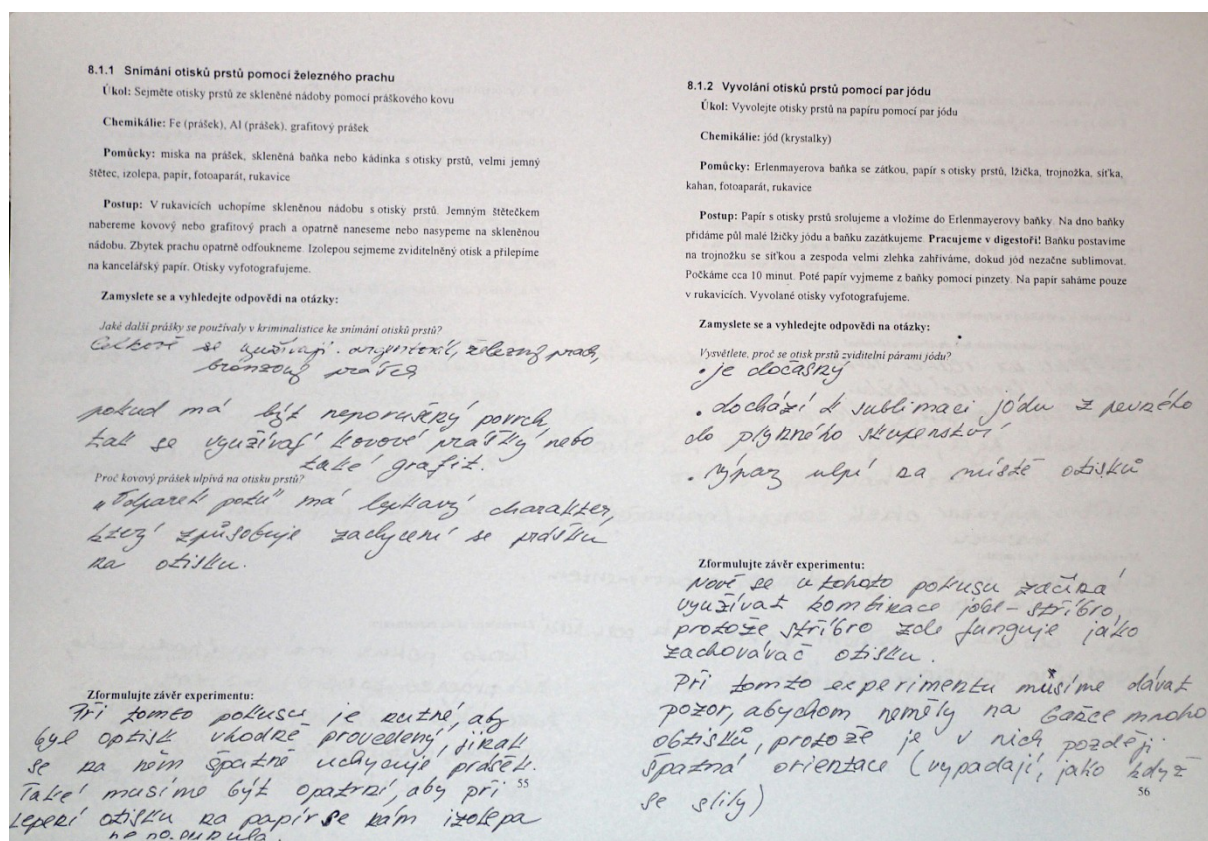 8.1.1 Snímání otisků prstů pomocí železného prachu
Úkol: Sejměte otisky prstů ze skleněné nádoby pomocí práškového kovu
Chemikálie: Fe (prášek), Al (prášek), grafitový prášek
Pomůcky: miska na prášek, skleněná baňka nebo kádinka s otisky prstů, velmi jemný
štětec, izolepa, papír, fotoaparát, rukavice
Postup: V rukavicích uchopíme skleněnou nádobu s otisky prstů. Jemným štětečkem
nabereme kovový nebo grafitový prach a opatrně naneseme nebo nasypeme na skleněnou
nádobu. Zbytek prachu opatrně odfoukneme. Izolepou sejmeme zviditelněný otisk a přilepíme
na kancelářský papír. Otisky vyfotografujeme.
Zamyslete se a vyhledejte odpovědi na otázky:
Jaké další prášky se používaly v kriminalistice ke snímání otisků prstů?
Celkově se využívají argentorát, železný prach,
bronzový prášek
pokud má být neporušený povrch,
tak se využívají kovové prášky nebo
také grafit.
Proč kovový prášek ulpívá na otisku prstů?
"Odparek potu" má lepkavý charakter,
který způsobuje zachycení se prášku
na otisku.
Zformulujte závěr experimentu:
Při tomto pokusu je nutné, aby
byl optisk vhodně provedený, jinak
se na něm špatně uchycuje prášek.
Také musíme být opatrní, aby při
lepení otisku na papír se nám izolepa
55
8.1.2 Vyvolání otisků prstů pomocí par jódu
Úkol: Vyvolejte otisky prstů na papíru pomocí par jódu
Chemikálie: jód (krystalky)
Pomůcky: Erlenmayerova baňka se zátkou, papír s otisky prstů, lžička, trojnožka, síťka,
kahan, fotoaparát, rukavice
Postup: Papír s otisky prstů srolujeme a vložíme do Erlenmayerovy baňky. Na dno baňky
přidáme půl malé lžičky jódu a baňku zazátkujeme. Pracujeme v digestoři! Baňku postavíme
na trojnožku se síťkou a zespoda velmi zlehka zahříváme, dokud jód nezačne sublimovat.
Počkáme cca 10 minut. Poté papír vyjmeme z baňky pomocí pinzety. Na papír saháme pouze
v rukavicích. Vyvolané otisky vyfotografujeme.
Zamyslete se a vyhledejte odpovědi na otázky:
Vysvětlete, proč se otisk prstů zviditelní párami jódu?
• je dočasný
• dochází k sublimaci jódu z pevného
do plynného skupenství
• výpar ulpí na místě otisků
Zformulujte závěr experimentu:
Nově se u tohoto pokusu začíná
využívat kombinace jód - stříbro,
protože stříbro zde funguje jako
zachovávač otisku.
Při tomto experimentu musíme dávat
pozor, abychom neměly na baňce mnoho
obtisků, protože je v nich později
špatná orientace (vypadají, jako když
se slily)
56